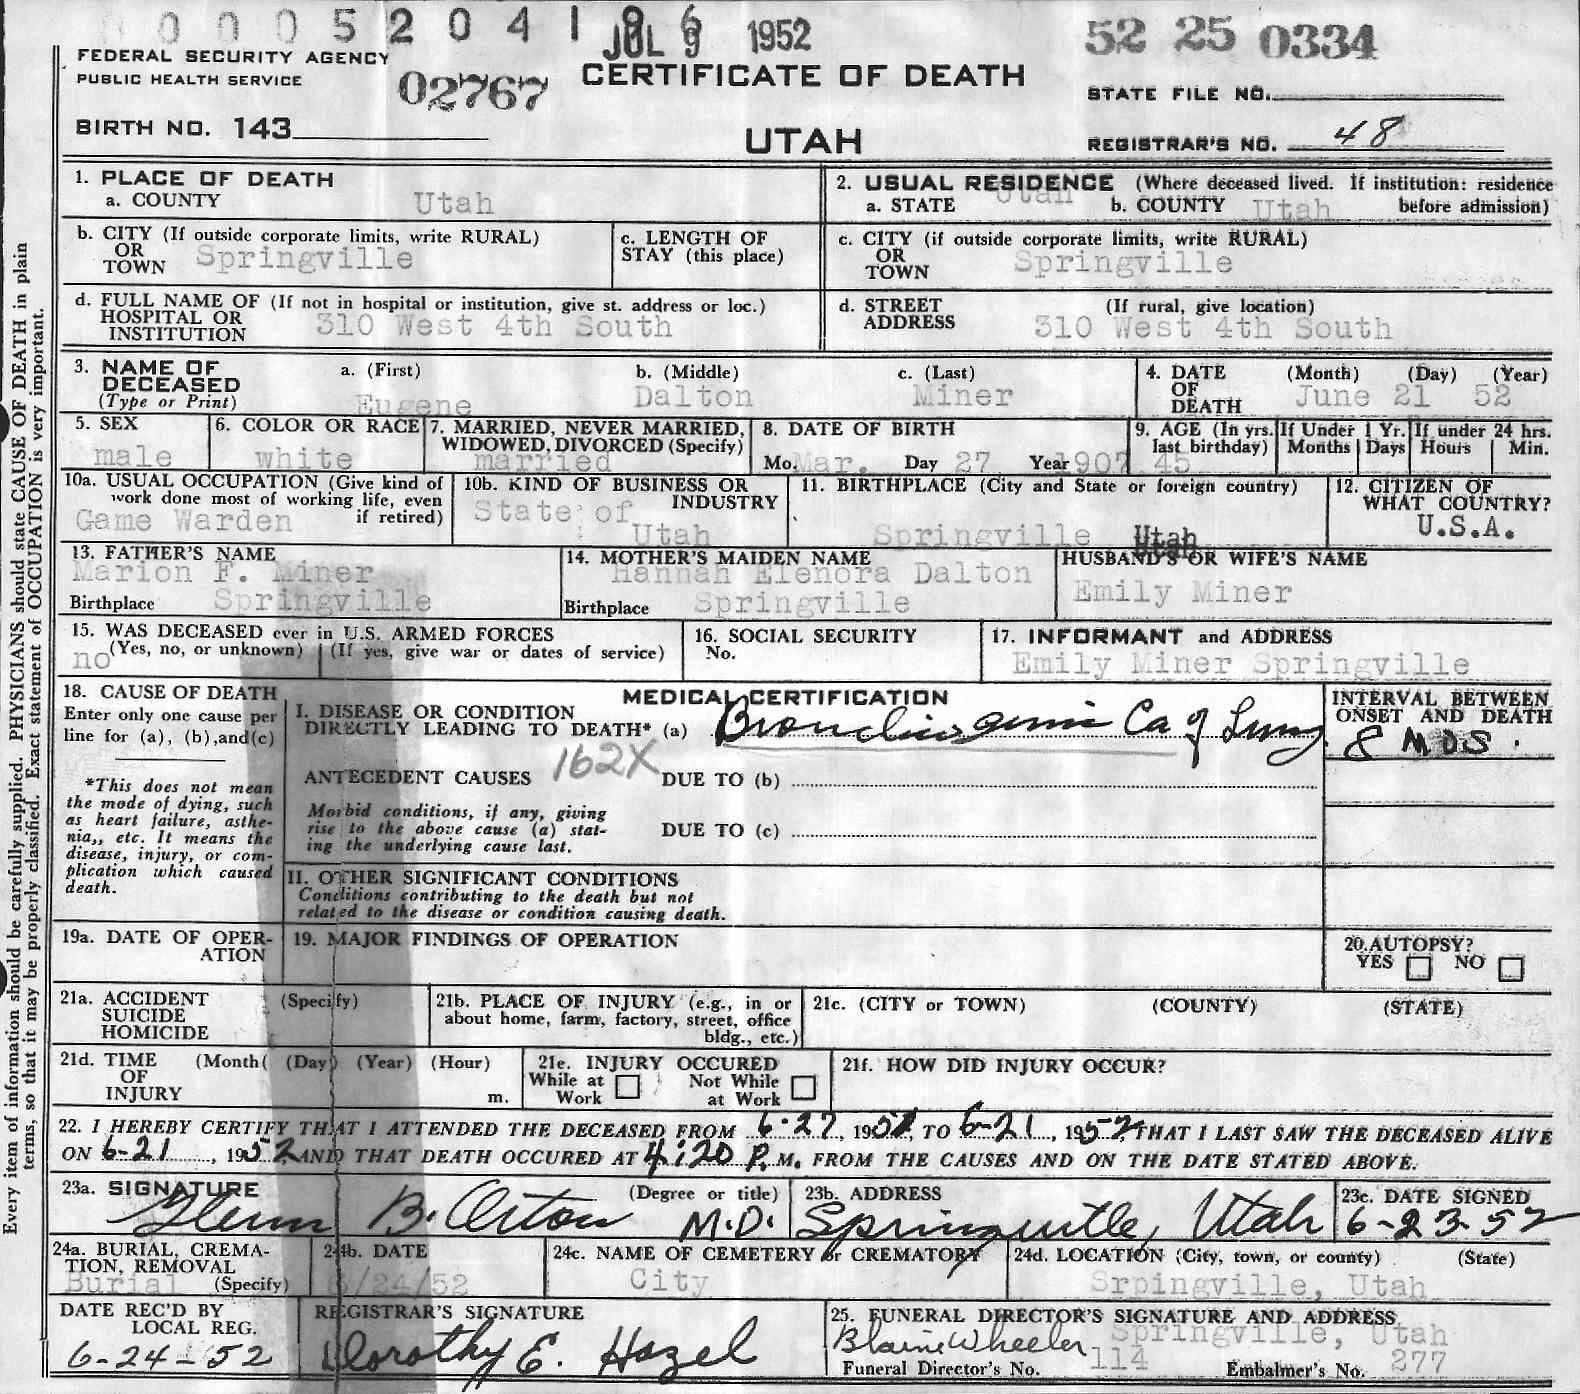 0 0 0 5 2 0 4 1 JUL 9 1952 52 25 0334
FEDERAL SECURITY AGENCY
PUBLIC HEALTH SERVICE
02767
CERTIFICATE OF DEATH
STATE FILE NO.
BIRTH NO. 143
UTAH
REGISTRAR'S NO. 48
1. PLACE OF DEATH
a. COUNTY Utah
2. USUAL RESIDENCE (Where deceased lived. If institution: residence
a. STATE Utah b. COUNTY Utah before admission)
b. CITY (If outside corporate limits, write RURAL)
OR
TOWN Springville
c. LENGTH OF
STAY (this place)
c. CITY (if outside corporate limits, write RURAL)
OR
TOWN Springville
d. FULL NAME OF (If not in hospital or institution, give st. address or loc.)
HOSPITAL OR
INSTITUTION 310 West 4th South
d. STREET (If rural, give location)
ADDRESS 310 West 4th South
3. NAME OF
DECEASED
(Type or Print)
a. (First) b. (Middle) c. (Last)
Eugene Dalton Miner
4. DATE (Month) (Day) (Year)
OF
DEATH June 21 52
5. SEX
male
6. COLOR OR RACE
white
7. MARRIED, NEVER MARRIED,
WIDOWED, DIVORCED (Specify)
married
8. DATE OF BIRTH
Mo. Mar. Day 27 Year 1907
9. AGE (In yrs.
last birthday)
45
If Under 1 Yr.
Months Days
If under 24 hrs.
Hours Min.
10a. USUAL OCCUPATION (Give kind of
work done most of working life, even
if retired)
Game Warden
10b. KIND OF BUSINESS OR
INDUSTRY
State of
Utah
11. BIRTHPLACE (City and State or foreign country)
Springville Utah
12. CITIZEN OF
WHAT COUNTRY?
U.S.A.
13. FATHER'S NAME
Marion F. Miner
Birthplace Springville
14. MOTHER'S MAIDEN NAME
Hannah Elenora Dalton
Birthplace Springville
HUSBAND'S OR WIFE'S NAME
Emily Miner
15. WAS DECEASED ever in U.S. ARMED FORCES
(Yes, no, or unknown) (If yes, give war or dates of service)
no
16. SOCIAL SECURITY
No.
17. INFORMANT and ADDRESS
Emily Miner Springville
18. CAUSE OF DEATH
Enter only one cause per
line for (a), (b), and (c)
*This does not mean
the mode of dying, such
as heart failure, asthe-
nia,, etc. It means the
disease, injury, or com-
plication which caused
death.
MEDICAL CERTIFICATION
I. DISEASE OR CONDITION
DIRECTLY LEADING TO DEATH* (a) Ca of Lung
162X
ANTECEDENT CAUSES DUE TO (b)
Morbid conditions, if any, giving
rise to the above cause (a) stat-
ing the underlying cause last.
DUE TO (c)
INTERVAL BETWEEN
ONSET AND DEATH
8 MOS.
II. OTHER SIGNIFICANT CONDITIONS
Conditions contributing to the death but not
related to the disease or condition causing death.
19a. DATE OF OPER-
ATION
19. MAJOR FINDINGS OF OPERATION
20. AUTOPSY?
YES NO
21a. ACCIDENT (Specify)
SUICIDE
HOMICIDE
21b. PLACE OF INJURY (e.g., in or
about home, farm, factory, street, office
bldg., etc.)
21c. (CITY or TOWN) (COUNTY) (STATE)
21d. TIME (Month( (Day) (Year) (Hour)
OF
INJURY m.
21e. INJURY OCCURED
While at Work
Not While at Work
21f. HOW DID INJURY OCCUR?
22. I HEREBY CERTIFY THAT I ATTENDED THE DECEASED FROM 6-27, 1951, TO 6-21, 1952, THAT I LAST SAW THE DECEASED ALIVE
ON 6-21, 1952 AND THAT DEATH OCCURED AT 4:20 P.M. FROM THE CAUSES AND ON THE DATE STATED ABOVE.
23a. SIGNATURE (Degree or title)
Glenn B. Orton M.D.
23b. ADDRESS
Springville, Utah
23c. DATE SIGNED
6-23-52
24a. BURIAL, CREMA-
TION, REMOVAL
Burial (Specify)
24b. DATE
6/24/52
24c. NAME OF CEMETERY or CREMATORY
City
24d. LOCATION (City, town, or county) (State)
Srpingville, Utah
DATE REC'D BY
LOCAL REG.
6-24-52
REGISTRAR'S SIGNATURE
Dorothy E. Hazel
25. FUNERAL DIRECTOR'S SIGNATURE AND ADDRESS
Blaine Wheeler Springville, Utah
Funeral Director's No. 114 Embalmer's No. 277
Every item of information should be carefully supplied. PHYSICIANS should state CAUSE OF DEATH in plain
terms, so that it may be properly classified. Exact statement of OCCUPATION is very important.